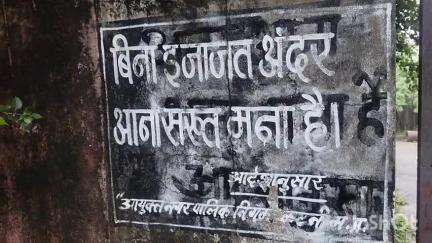 बिना इजाजत अंदर
आना सख्त मना है।
आदेशानुसार
"आयुक्त नगर पालिक निगम कटनी म.प्र.